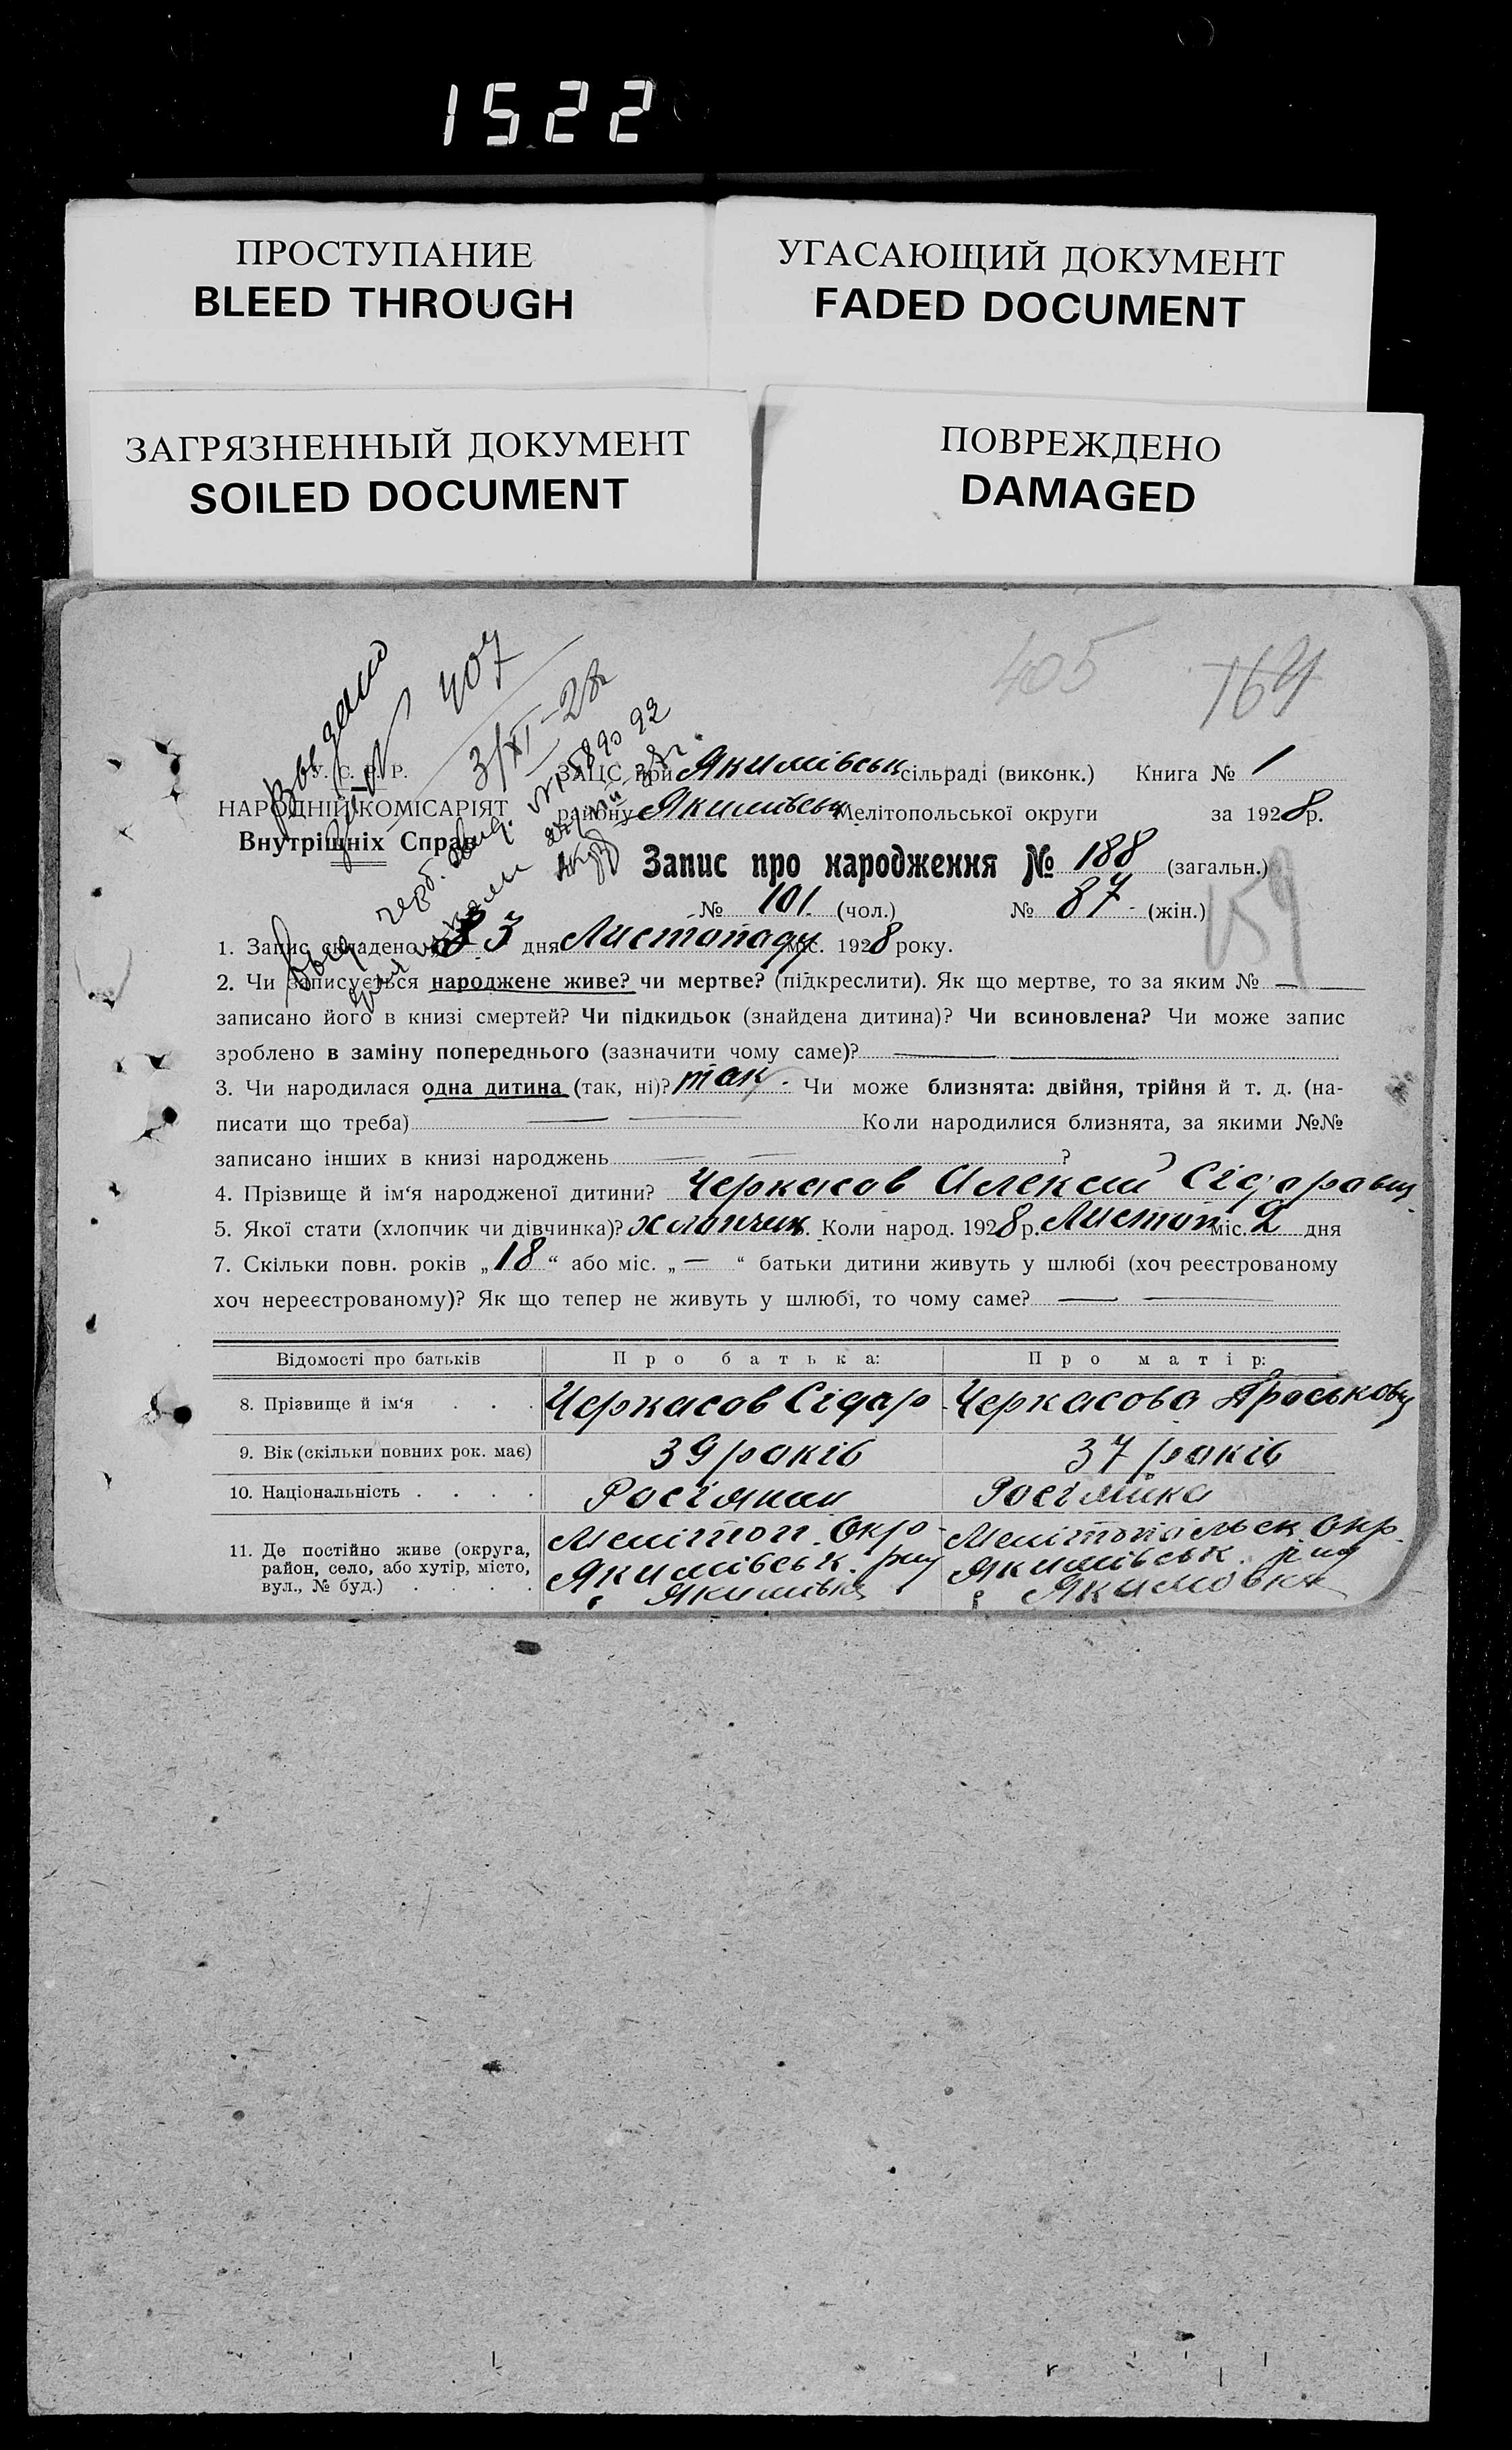 1522
ПРОСТУПАНИЕ
BLEED THROUGH
УГАСАЮЩИЙ ДОКУМЕНТ
FADED DOCUMENT
ЗАГРЯЗНЕННЫЙ ДОКУМЕНТ
SOILED DOCUMENT
ПОВРЕЖДЕНО
DAMAGED
405
164
407
3/XI-28
У. С. Р. Р.
НАРОДНІЙ КОМІСАРІЯТ
Внутрішніх Справ
ЗАЦС при Якимівськ сільраді (виконк.) Книга № 1
району Якимівськ Мелітопольської округи за 1928 р.
Запис про народження № 188 (загальн.)
№ 101 (чол.) № 87 (жін.)
159
1. Запис складено 3 дня Листопаду міс. 1928 року.
2. Чи записується народжене живе? чи мертве? (підкреслити). Як що мертве, то за яким № —
записано його в книзі смертей? Чи підкидьок (знайдена дитина)? Чи всиновлена? Чи може запис
зроблено в заміну попереднього (зазначити чому саме)? —
3. Чи народилася одна дитина (так, ні)? так. Чи може близнята: двійня, трійня й т. д. (на-
писати що треба) — — Коли народилися близнята, за якими №№
записано інших в книзі народжень — — ?
4. Прізвище й ім‘я народженої дитини? Черкасов Алексій Сідарович
5. Якої стати (хлопчик чи дівчинка)? хлопчик. Коли народ. 1928 р. Листоп міс. 2 дня
7. Скільки повн. років „18“ або міс. „—“ батьки дитини живуть у шлюбі (хоч реєстрованому
хоч нереєстрованому)? Як що тепер не живуть у шлюбі, то чому саме? — —
Відомості про батьків Про батька: Про матір:
8. Прізвище й ім‘я . . . Черкасов Сідар Черкасова
9. Вік (скільки повних рок. має) 39 років 37 років
10. Національність . . . . Росіянин Росіянка
11. Де постійно живе (округа,
район, село, або хутір, місто,
вул., № буд.) . . . .
Мелітоп. Окр
Якимівськ.
Якимівка
Мелітопольськ Окр.
Якимівськ.
Якимовка